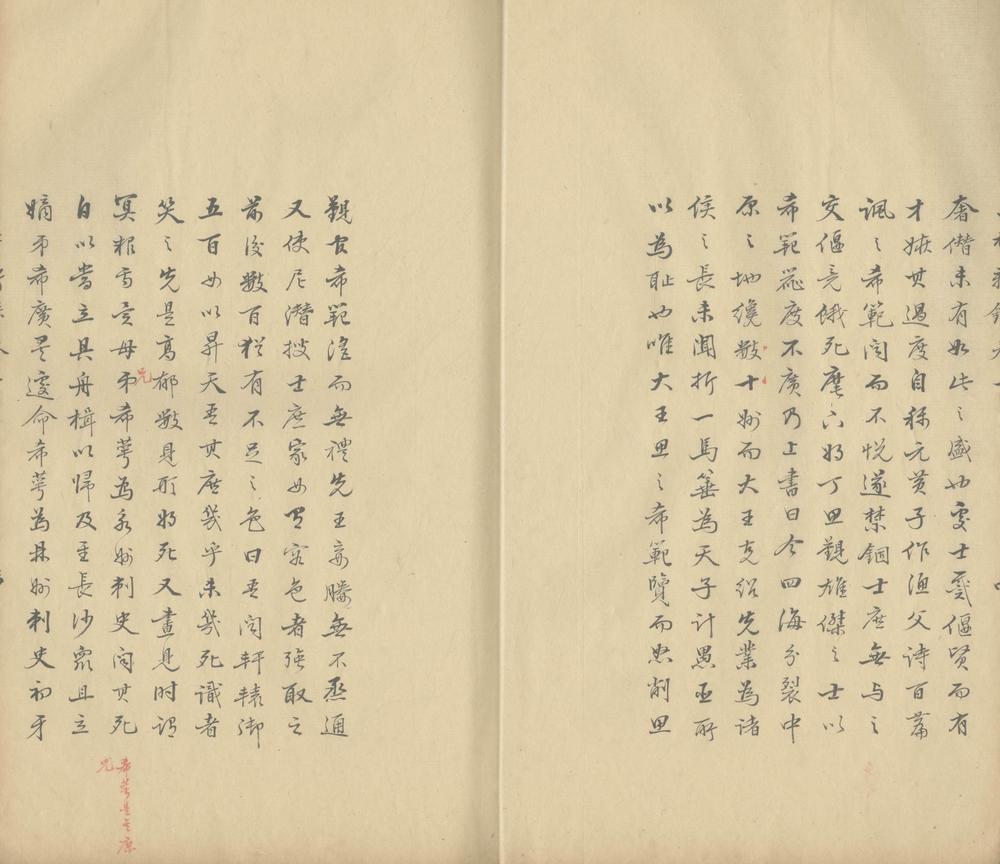 奢僭未有如此之盛也處士戴偃賢而有
才嫉其過度自稱元黃子作漁父詩百篇
諷之希範聞而不悅遂禁錮士庶無与之
交偃竟餓死麾下將丁思覲雄傑之士以
希範器度不廣乃上書曰今四海分裂中
原之地纔數十州而大王克紹先業為諸
侯之長未聞折一馬箠為天子計愚臣所
以為恥也唯大王思之希範覽而怒削思
覲官希範淫而無禮先王妾媵無不烝通
又使尼潛搜士庶家女有容色者強取之
前後數百猶有不足之色曰吾聞軒轅御
五百女以昇天吾其庶幾乎未幾死識者
笑之先是高郁數見形將死又晝見時謂
冥報焉言母弟希萼為永州刺史聞其死
兄
自以當立具舟楫以歸及至長沙眾且立
嫡弟希廣遽命希萼為州刺史初牙
希萼是廣
兄